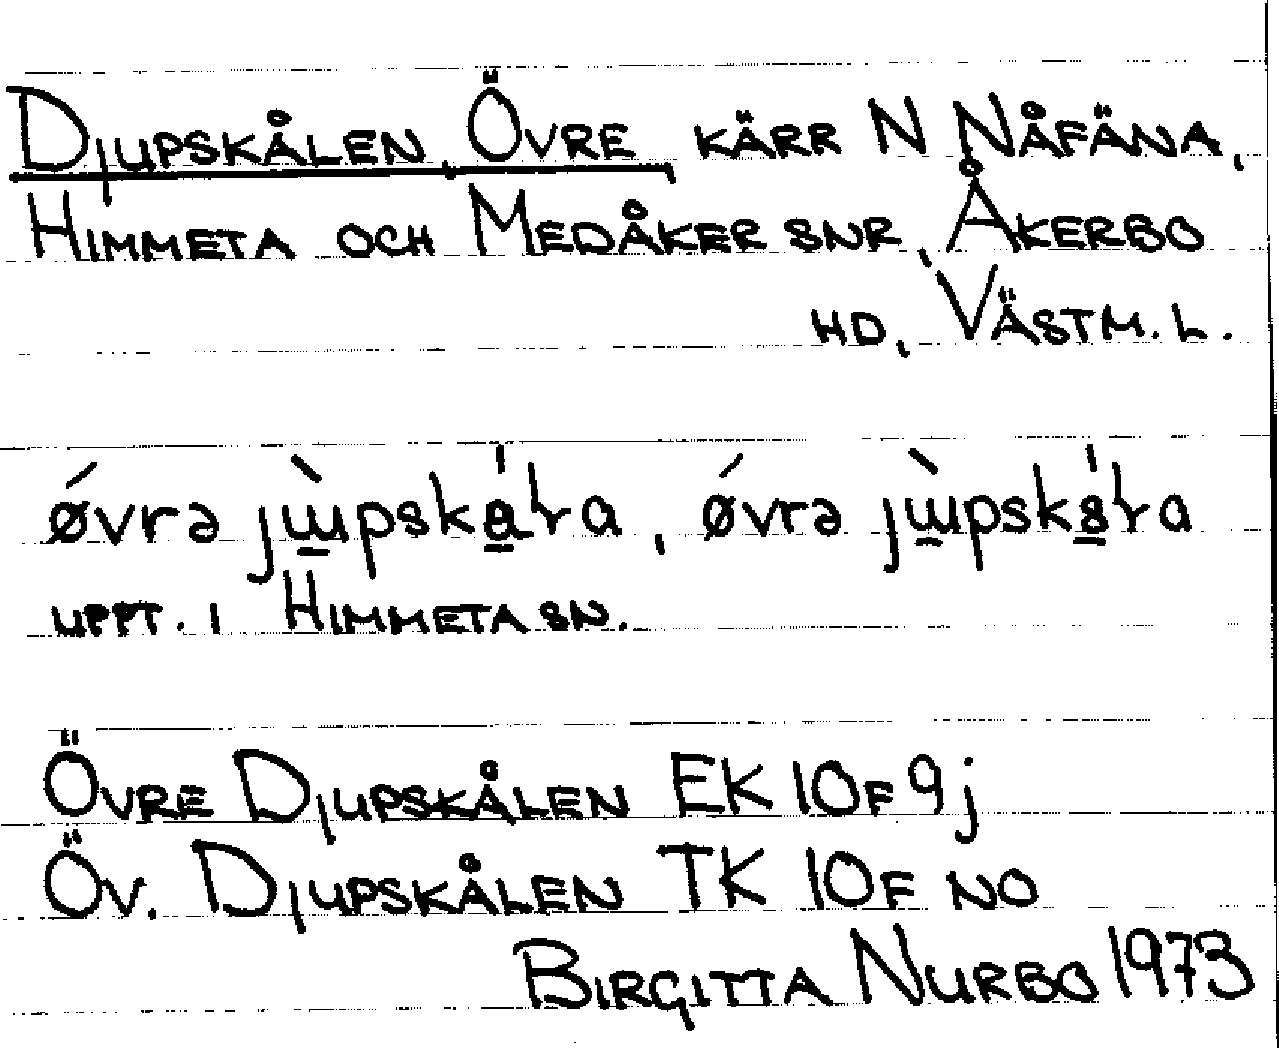 Djupskålen, Övre kärr N Nåfäna,
Himmeta och Medåker snr, Åkerbo
hd, Västm. l.
uppt. i Himmeta sn.
Övre Djupskålen EK 10F9j
Öv. Djupskålen TK 10F NO
Birgitta Nurbo 1973